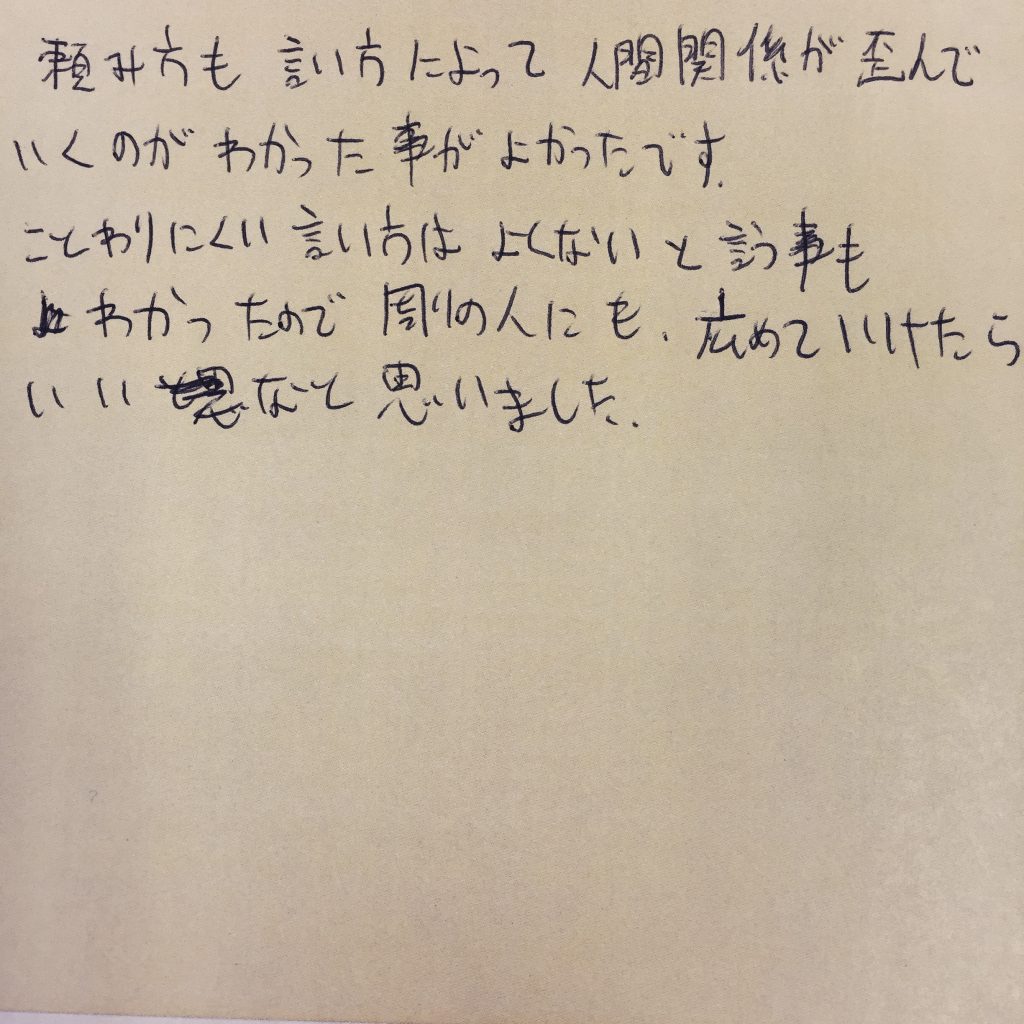 頼み方も言い方によって人間関係が歪んで
いくのがわかった事がよかったです.
ことわりにくい言い方はよくないと言う事も
わかったので周りの人にも.広めていけたら
いいなと思いました.